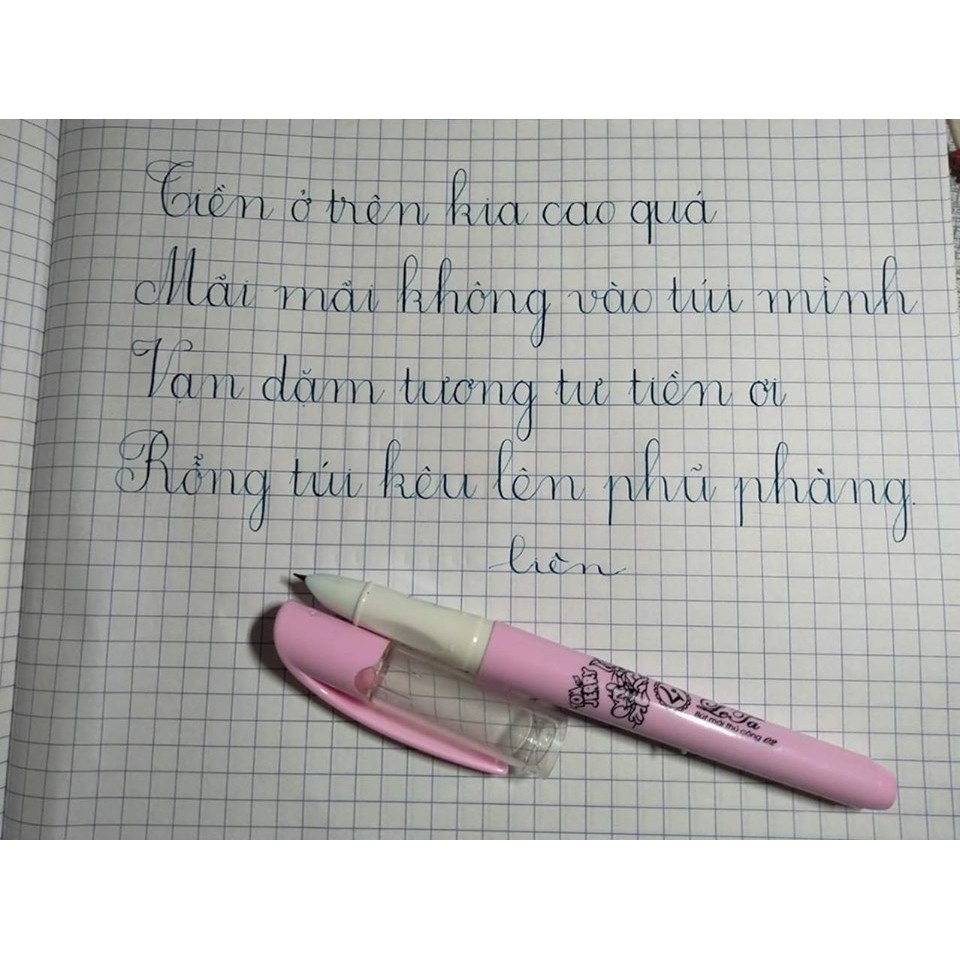 Tiền ở trên kia cao quá
Mãi mãi không vào túi mình
Vạn dặm tương tư tiền ơi
Rỗng túi kêu lên phũ phàng.
tiền
TOM & JERRY
LoTa
Bút mài thủ công 02